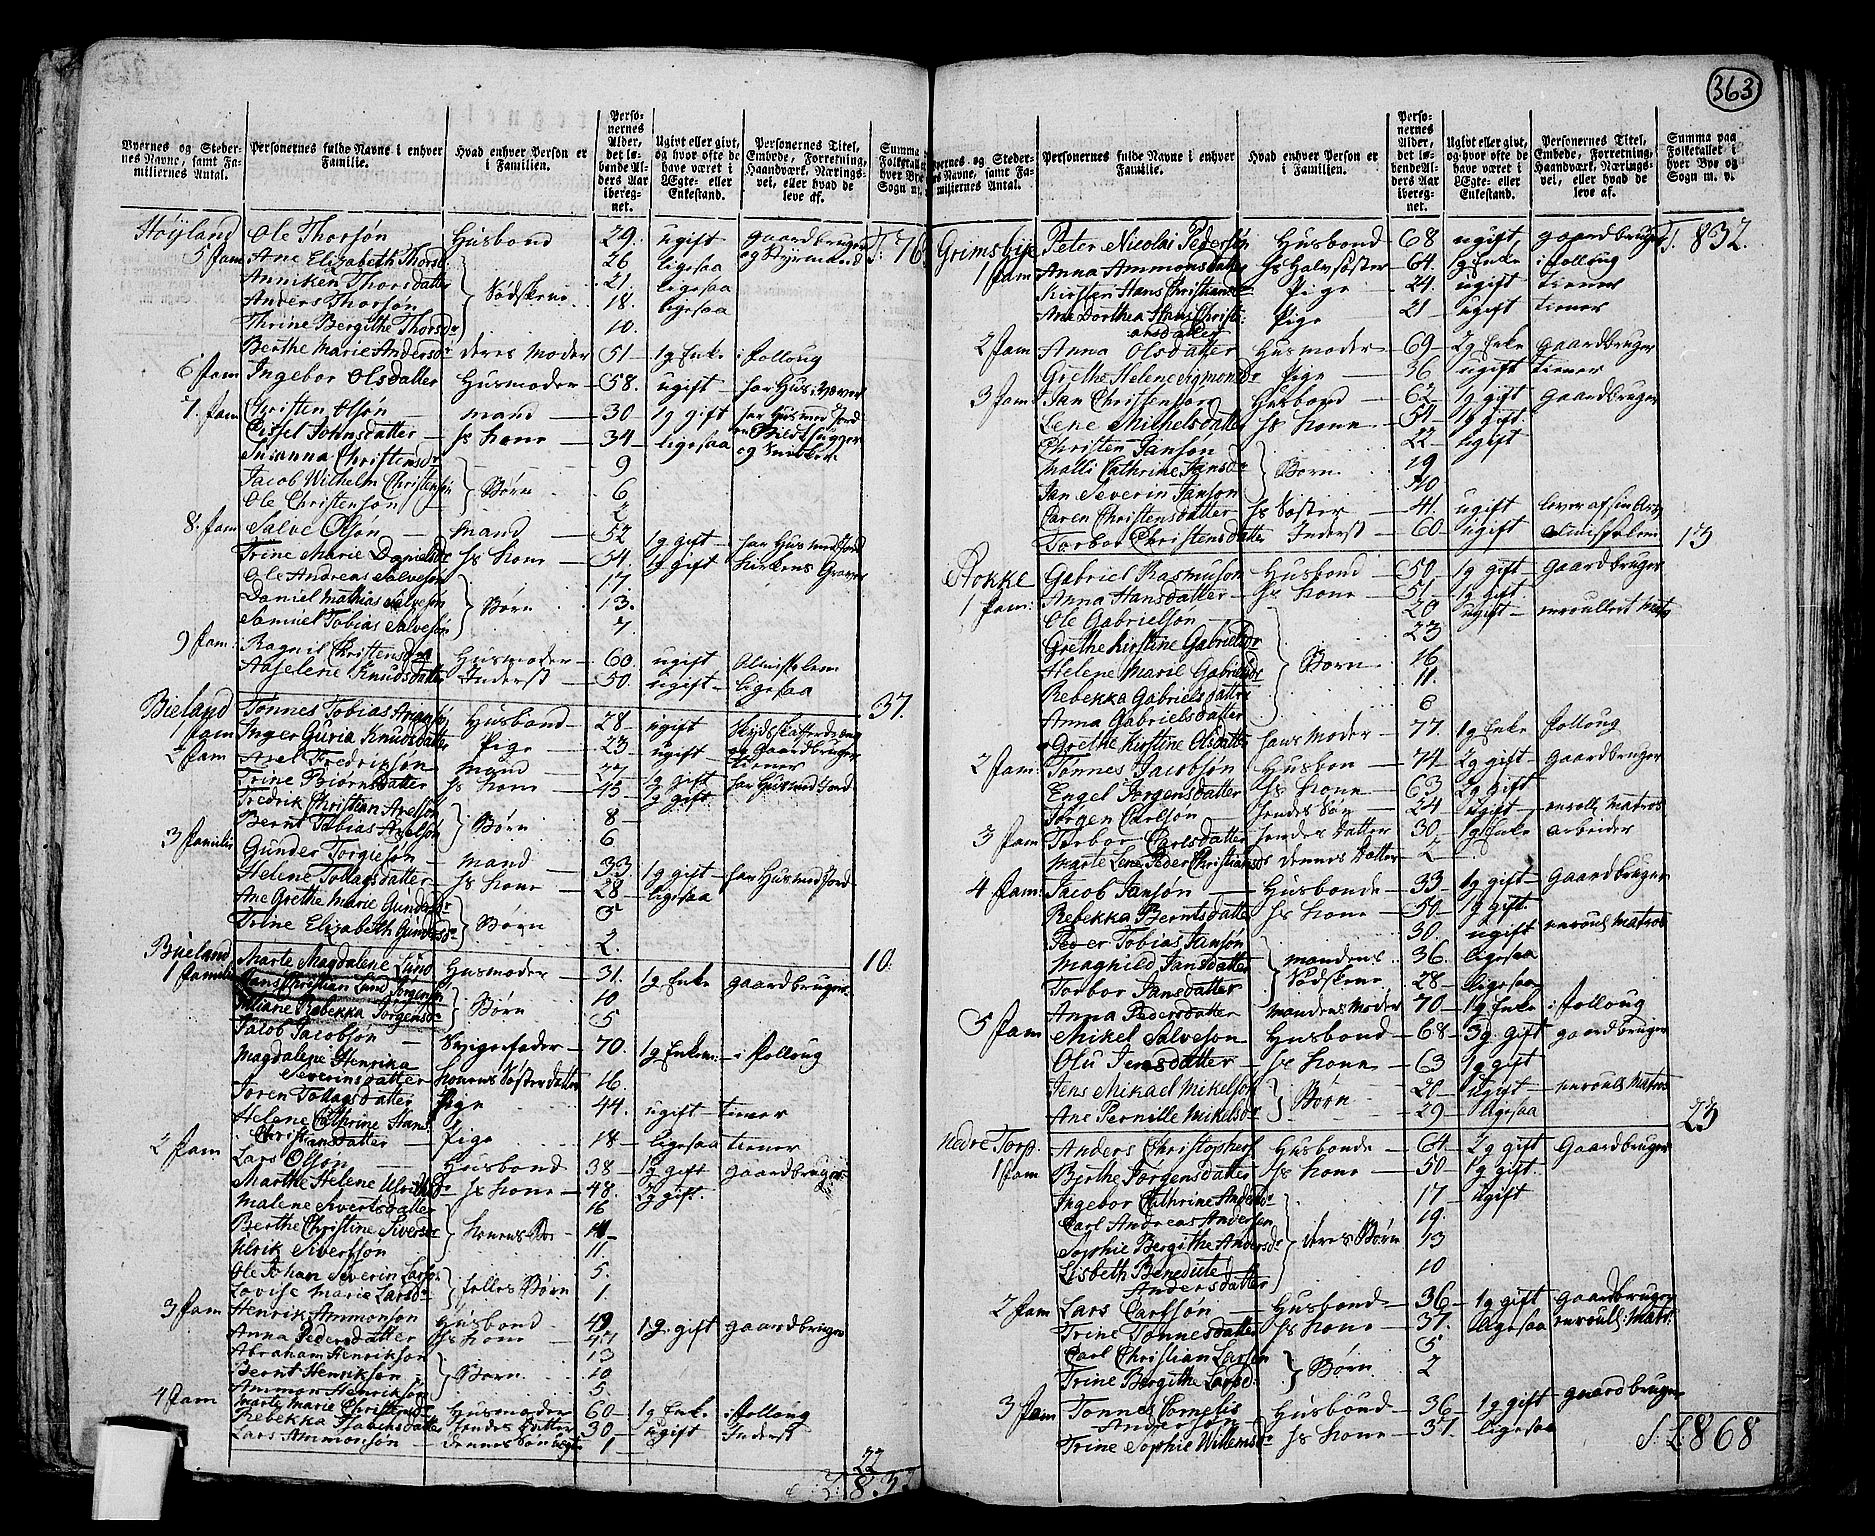 363
Byernes og Stedernes Navne, samt Familiernes Antal. Personernes fulde Navne i enhver Familie. Hvad enhver Person er i Familien. Personernes Alder, det løbende Alders Aar iberegnet. Ugivt eller givt, og hvor ofte de have været i Ægte- eller Enkestand. Personernes Titel, Embede, Forretning, Haandværk, Næringsvei, eller hvad de leve af. Summa Folketallet hver Bye Sogn m.
Høyland Ole Thorsøn Husbond 29. ugift gaardbruger T. 76
5 fam Ane Elizabeth Thorsd. 26 ligesaa og Styrmand
Anniken Thorsdatter 21. ligesaa
Anders Thorsøn Sødskene 18. ligesaa
Thrine Bergithe Thorsdr 10.
Berthe Marie Andersdr deres Moder 51 1g Enke i folloug
6 fam Ingebor Olsdatter Husmoder 58. ugift har Hus, væver
7. fam Christen Olsøn mand 30 1g gift har Hus med Jord
Cissel Johnsdatter hs Kone 34 ligesaa Bildthugger og Snedker
Susanna Christensdr 9
Jacob Wilhelm Christensøn Børn 6
Ole Christensøn 2
8. fam Salve Olsøn mand 52 1g gift har Hus med Jord
Trine Marie Danielsdr hs Kone 54. 1g gift Kirkens Graver
Ole Andreas Salvesøn 17.
Daniel Mathias Salvesøn Børn 13.
Samuel Tobias Salvesøn 7
9 fam: Ragnil Christensdr Husmoder 60. ugift Almislem
Aaselene Knudsdatter Inderst 50. ugift ligesaa 37.
Bieland Tønnes Tobias Husbond 28 ugift
1 fam Inger Guria Knudsdatter Pige 23 ugift og Gaardbruger tiener
2 fam Axel Fredriksøn mand 27 1g gift har Hus med Jord
Trine Biørnsdatter hs Kone 45 2g gift
Fredrik Christian Axelsøn 8
Bernt Tobias Axelsøn Børn 6
3 familie Gunder Torgiesøn mand 33. 1g gift har Hus med Jord
Helene Tollagsdatter hs Kone 28 ligesaa
Ane Grethe Marie Gundersdr 5
Trine Elizabeth Gundersdr Børn 2. 10.
Bieland Marte Magdalene Lund Husmoder 31. 1g Enke gaardbruger
1 familie Hans Christian Lund Jørgensøn 10
Juliane Rebekka Jørgensdr Børn 5
Jacob Jacobsøn Svigerfader 70. 1g Enkem: i folloug
Magdalene Henrika Severinsdatter Konens Søsterdatter 16.
Joren Tollagsdatter Pige 44. ugift tiener
Helene Cathrine Hans Christiansdatter Pige 18 ligesaa tiener
2 fam Lars Olsøn Husbond 38 1g gift gaardbruger
Marthe Helene Ulriksdr hs Kone 48. 2g gift.
Malene Sivertsdatter 16
Berthe Christine Siversdr Konens Bør 14
Ulrik Sivertsøn 11.
Ole Johan Severin Larsøn 5.
Lovise Marie Larsdr felles Børn 1.
3 fam Henrik Ammonsøn Husbond 49 1g. gift gaardbruger
Anna Pedersdatter hs Kone 47
Abraham Henriksøn 13
Bernt Henriksøn Børn 10
Ammon Henriksøn 5.
4 fam Marte Marie Christensdr Husmoder 60 1g Enke i folloug
Rebekka Jfachsdatter hendes Datter 30 ugift Inderst
Lars Ammonsøn dennes Søn 1 22
Byernes og Stedernes Navne, samt Familiernes Antal. Personernes fulde Navne i enhver Familie. Hvad enhver Person er i Familien. Personernes Alder, det løbende Alders Aar iberegnet. Ugivt eller givt, og hvor ofte de have været i Ægte- eller Enkestand. Personernes Titel, Embede, Forretning, Haandværk, Næringsvei, eller hvad de leve af. Summa paa Folketallet i hver Bye og Sogn m. v.
Grimsbye Peter Nicolai Pedersøn Husbond 68 ugift gaardbruger T. 832.
1 fam Anna Ammonsdatter hs Halvsøster 64. 1g Enke i folloug
Kirsten Hans Christiansdr Pige 24. ugift tiener
Ane Dorthea Hans Christiansdatter Pige 21 ugift tiener
2 fam Anna Olsdatter Husmoder 69 2g Enke gaardbruger
Grethe Helene Sigmondsdr Pige 36 ugift tiener
3 fam Jan Christensøn Husbond 62 1g gift gaardbruger
Lene Michelsdatter hs Kone 54 1g gift
Christen Jansøn 22 ugift
Malli Cathrine Jansdr Børn 19
Jan Severin Jansøn 10
Caren Christensdatter hs Søster 41. ugift lever af sin
Torbor Christensdatter Inderst 60 ugift almislem 13
Rokke Gabriel Rasmusøn Husbond 50 1g gift gaardbruger
1 fam: Anna Hansdatter hs Kone 51 1g gift
Ole Gabrielsøn 20 ugift enroullert Mats
Grethe Kirstine Gabrielsdr 23
Helene Marie Gabrielsdr Børn 16
Rebekka Gabrielsdatter 11
Anna Gabrielsdatter 6
Grethe Kirstine Olsdatter hans Moder 77. 1g Enke folloug
2 fam: Tønnes Jacobsøn Husbon 74 2g gift Gaardbruger
Engel Jørgensdatter hs Kone 63 2g gift
Jørgen Carlsøn hendes Søn 24 ugift enroll. Matros
3 fam Torbor Carlsdatter hendes Datter 30 1g Enke arbeider
Marte Lene Peder Christiansdr dennes Datter 2
4 fam: Jacob Jansøn Husbonde 33 1g gift Gaardbruger
Rebekka Berntsdatter hs Kone 50 1g gift
Peder Tobias Jansøn 30. ugift enroul Matros
Maghild Jansdatter mandens 36. ligesaa
Torbor Jansdatter Sødskene 28 ligesaa
Anna Pedersdatter Mandens Moder 70 1g Enke i folloug
5 fam Mikel Salvesøn Husbond 68 3g. gift gaardbruger
Olu Jensdatter hs Kone 63 1g gift
Jens Mikael Mikelsøn 20 ugift enroull Matros
Ane Pernille Mikelsdr Børn 29 ligesaa 23
nedre Torp Anders Christophers Husbonde 64. 2g gift Gaardbruger
1 fam Berthe Jørgensdatter hs Kone 50 1g gift.
Ingebor Cathrine Andersdr 17 ugift
Carl Andreas Andersøn 19.
Sophie Bergithe Andersdr deres Børn 13
Lisbeth Benedicte Andersdatter 10
2 fam Lars Carlsøn Husbond 36 1g gift Gaardbruger
Trine Tønnesdatter hs Kone 37. ligesaa enroull: Matr:
Carl Christian Larsøn 5
Trine Bergithe Larsd. Børn 2
3 fam Tønnes Cornelis Andersøn Husbond 36 1g gift gaardbruger
Trine Sophie Willumsdr hs Kone 37. ligesaa
868